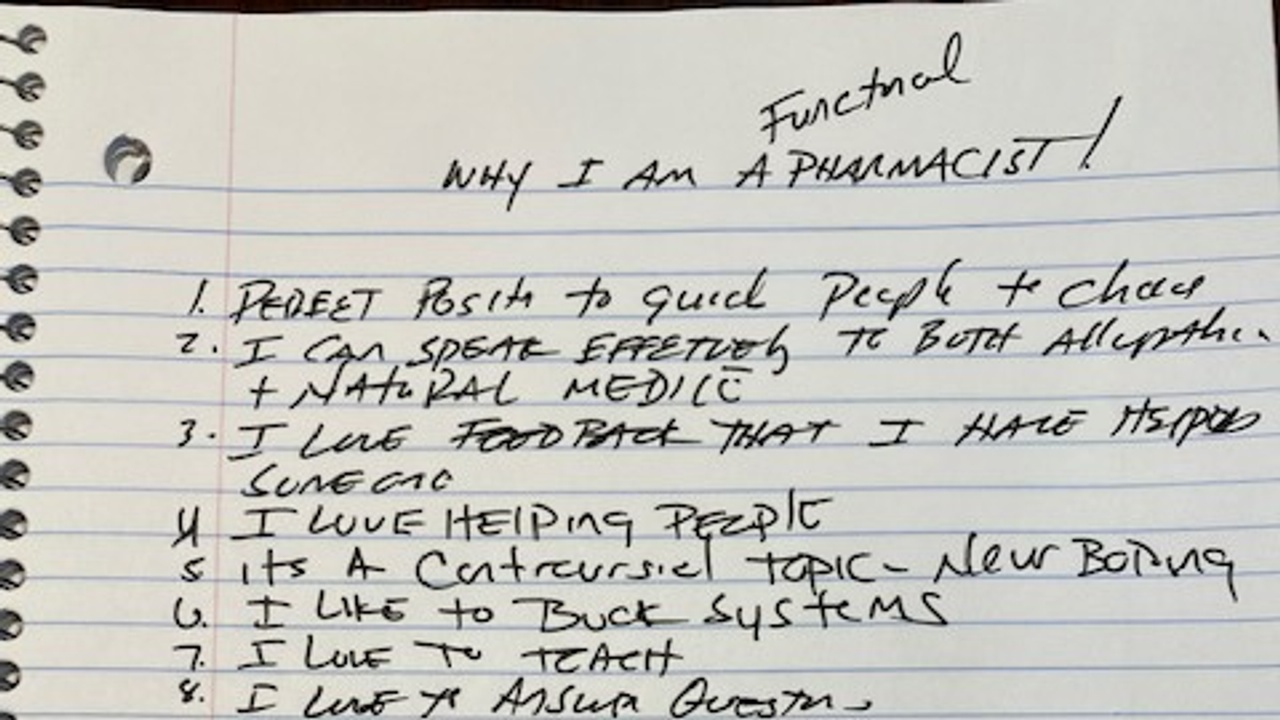 Functional
WHY I AM A PHARMACIST!
1. PERFECT Position to guide People to choose
2. I CAN SPEAK EFFECTIVELY TO BOTH Allopathic
+ NATURAL MEDICE
3. I LOVE FEEDBACK THAT I HAVE HELPED
SOMEONE
4 I LOVE HELPING PEOPLE
5 its A Controversial TOPIC - Never BORING
6. I LIKE to BUCK SYSTEMS
7. I LOVE TO TEACH
8. I LOVE to Answer Questions